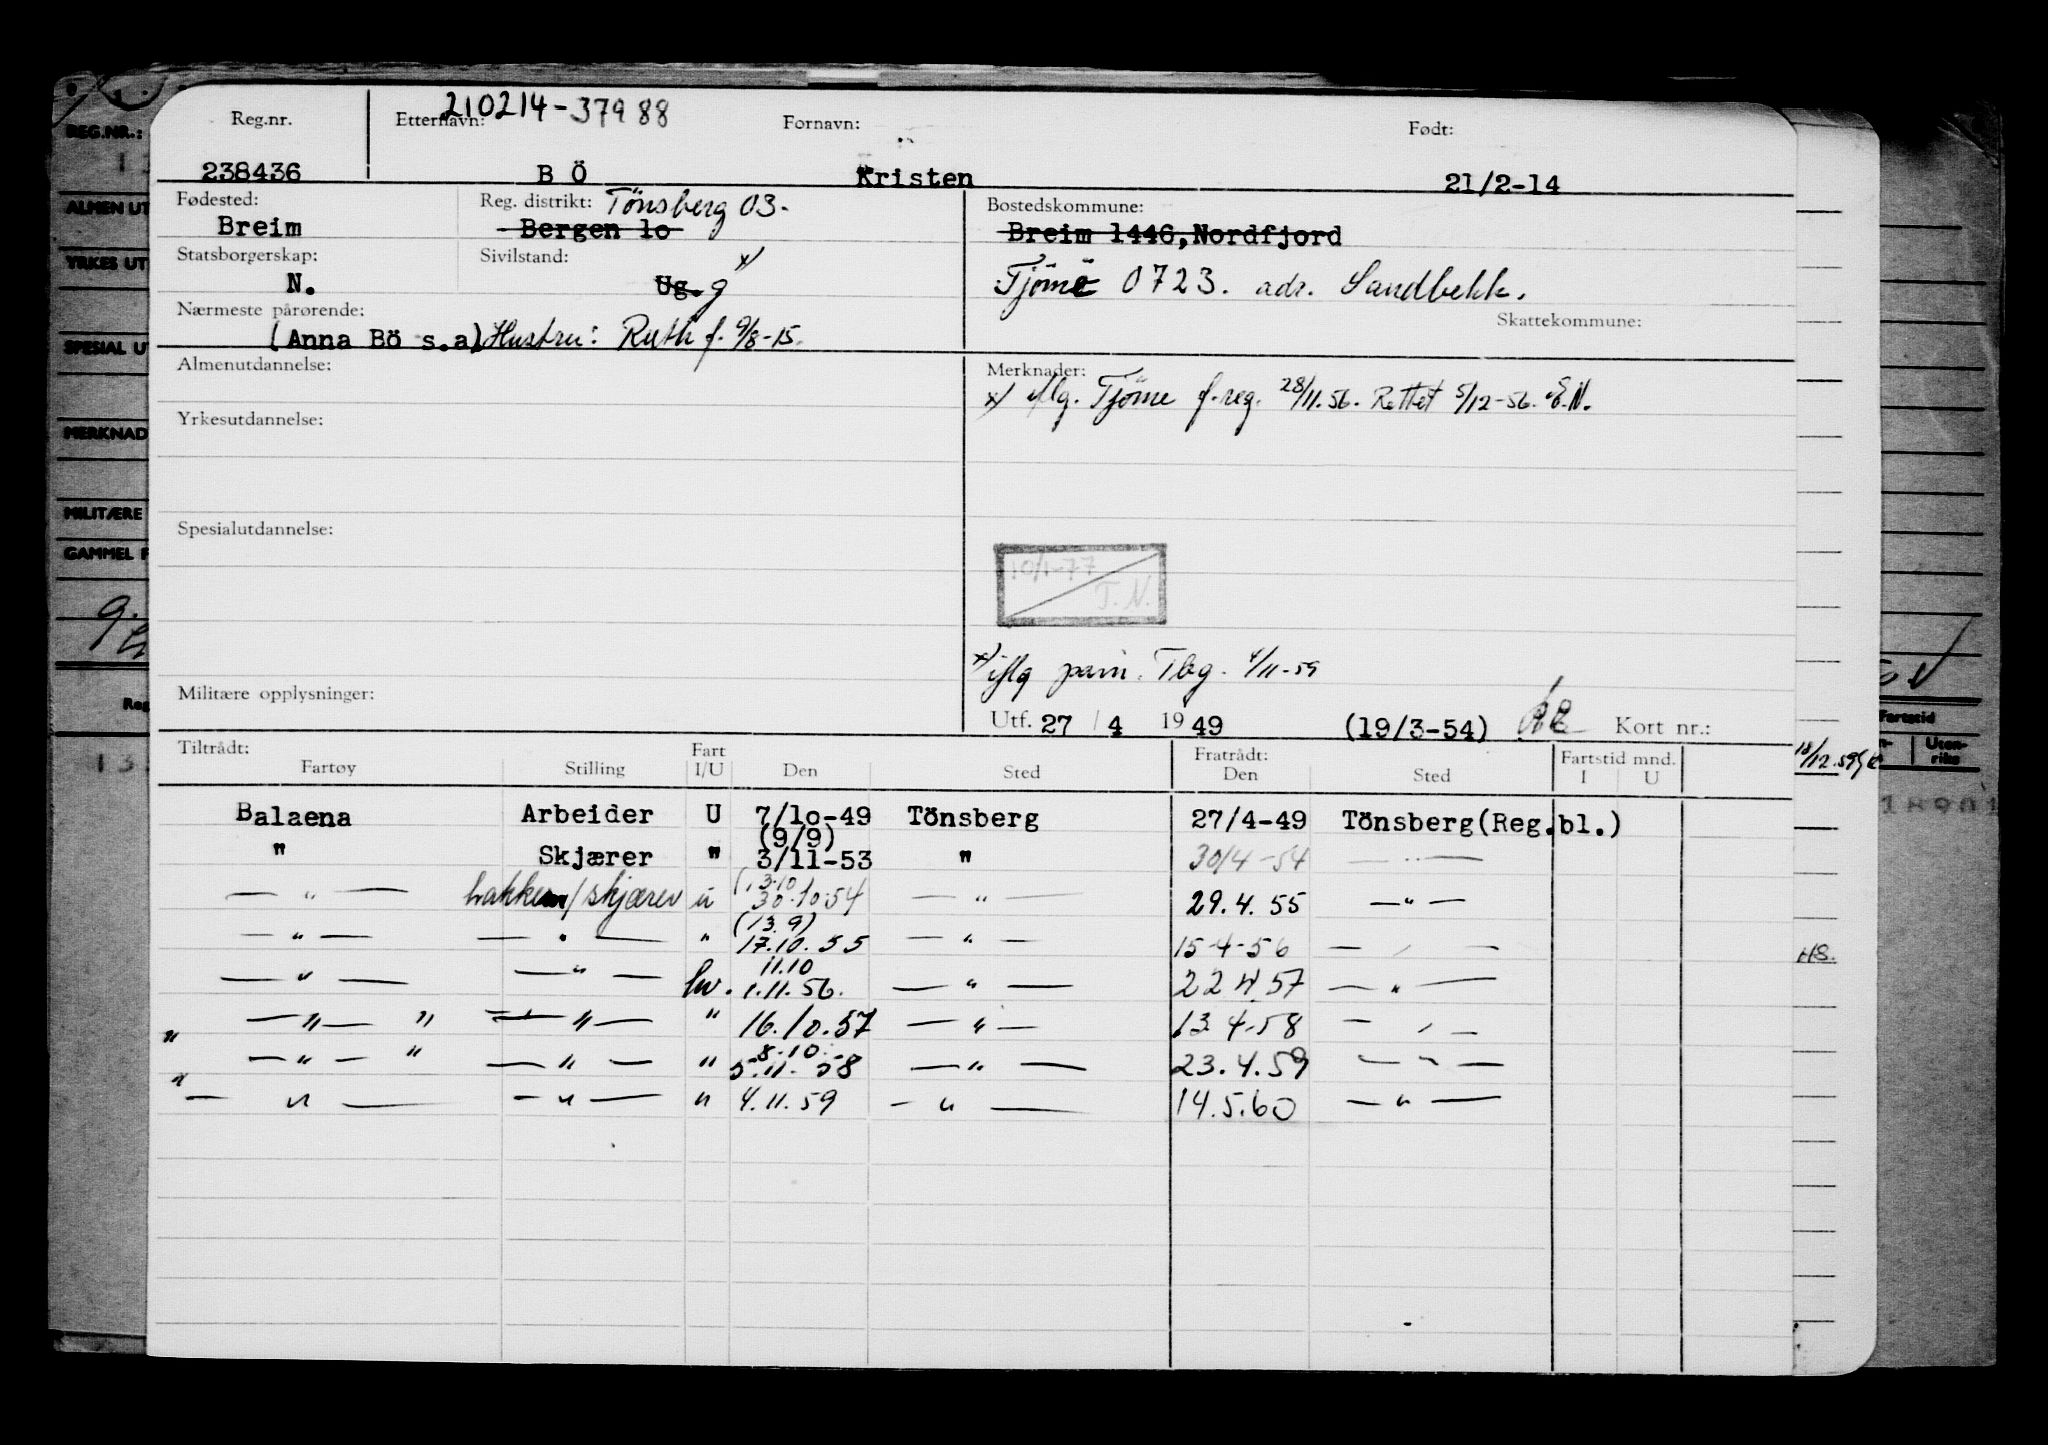 210214-37988
Reg.nr. Etternavn: Fornavn: Født:
238436 B Ö Kristen 21/2-14
Fødested: Reg. distrikt: Tönsberg 03. Bostedskommune:
Breim Bergen 1o Breim 1446,Nordfjord
Statsborgerskap: Sivilstand: x)
N. Ug. g Tjöme 0723. adr. Sandbekk.
Nærmeste pårørende: Skattekommune:
(Anna Bö s.a) Hustru: Ruth f. 9/8-15.
Almenutdannelse: Merknader:
x) iflg. Tjöme f.reg. 28/11.56. Rettet 5/12-56. E.N.
Yrkesutdannelse:
Spesialutdannelse:
10/1-77
T.N.
x) iflg Tbg. 4/11-59
Militære opplysninger:
Utf. 27 / 4 1949 (19/3-54) Kort nr.:
Tiltrådt: Fart Fratrådt: Fartstid mnd.
Fartøy Stilling I/U Den Sted Den Sted I U
Balaena Arbeider U 7/1o-49 Tönsberg 27/4-49 Tönsberg(Reg.bl.)
(9/9)
" Skjærer " 3/11-53 " 30/4-54 — " —
(13.10
— " — /skjærer u 30.10.54 — " — 29.4.55 — " —
(13.9)
— " — — " — " 17.10.55 — " — 15-4-56 — " —
11.10
— " — — " — hv. 1.11.56. — " — 22 4 57 — " —
— " — " — " — " 16.10.57 — " — 13.4-58 — " —
8.10.
" — " — " — " — " 5.11.58 — " — 23.4.59 — " —
" — " — — " — " 4.11.59 — " — 14.5.60 — " —
REG.NR.:
ALMEN UT
YRKES UT
SPESIAL U
MERKNAD
MILITÆRE
GAMMEL F
g.
Reg
13
Fartstid
Uten-
riks
18/12.59
HS.